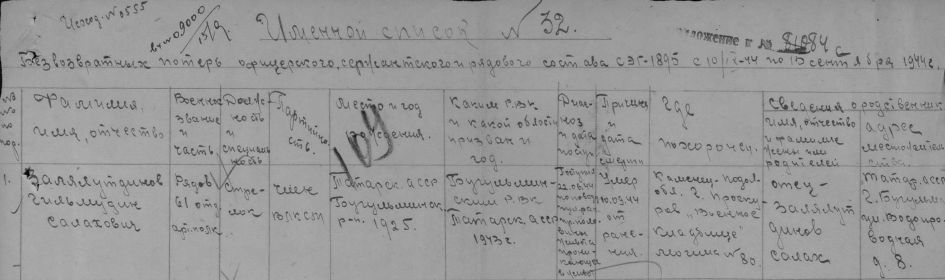 Исход. №0555
вх №09000
Именной список № 32.
Безвозвратных потерь офицерского, сержантского и рядового состава СЭГ-1895 с 10/IX-44 по 15 сентября 1944г.
№№ по пор.
Фамилия, имя, отчество
Военное звание и часть.
Должность и специальность
Партийность.
Место и год рождения.
Каким РВК и какой области призван и год.
Диагноз и дата поступ.
Причина и дата смерти
Где похоронен.
Сведения о родственник
имя, отчество и фамилия жены или родителей
адрес местожительства.
109
1.
Залялутдинов
Гильмудин
Салахович
Рядов
61 отд
арт.полк
Стрелок
член
ВЛКСМ
Татарск. АССР
Бугульминск.
р-н. 1925.
Бугульминский РВК
Татарск. АССР
1943 г.
Умер
10.09.44
от
ранения.
Каменец-Подол.
обл. г. Проскуров, "Военное
кладбище"
могила № 80.
отец -
Залялутдинов
Салах
Татар. АССР
г. Бугульма
ул. Водопроводная
д. 8.